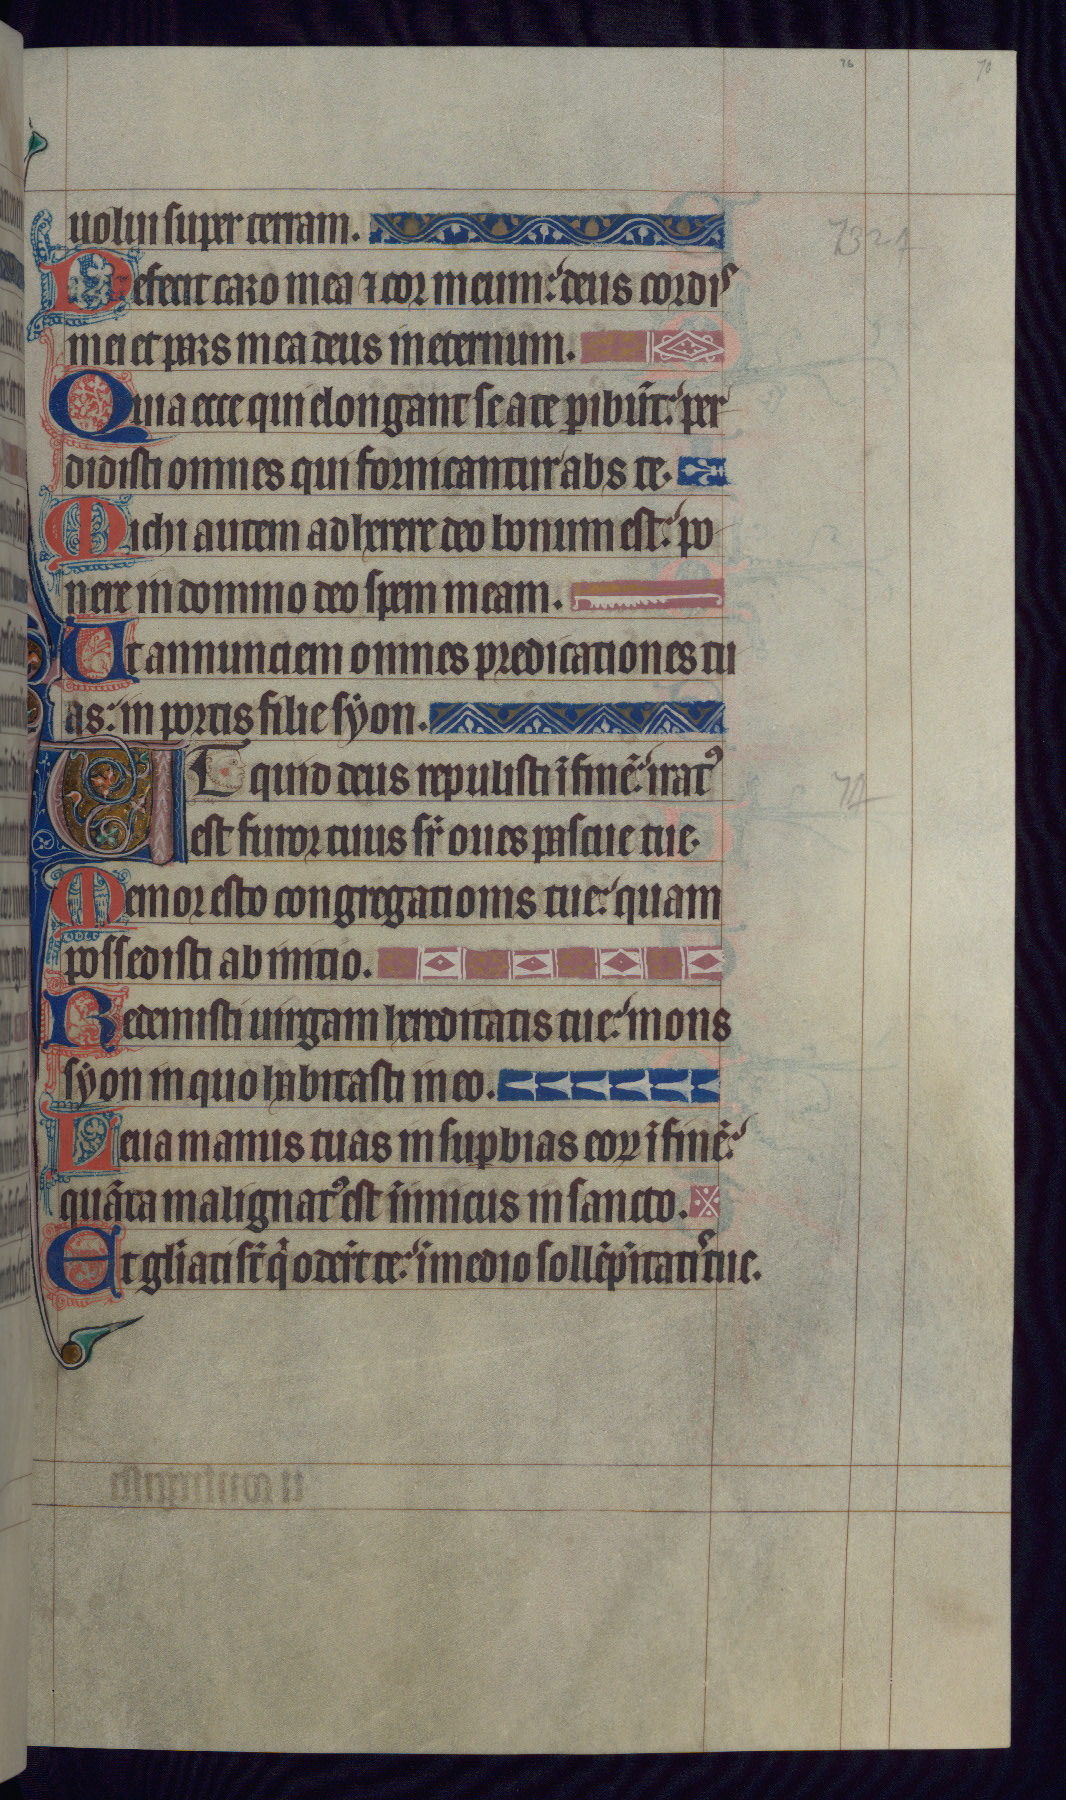 76
70
uolui super terram.
7321
Defecit caro mea ⁊ cor meum: deus cordis
mei et pars mea deus in eternum.
Quia ecce qui elongant se a te ꝑibūt: per
didisti omnes qui fornicantur abs te.
Michi autem adherere deo bonum est: po
nere in domino deo spem meam.
Ut annunciem omnes predicationes tu
as: in portis filie syon.
Ut quid deus repulisti ī finē: irat᷒
74
est furor tuus sr̄ oues pascue tue.
Memor esto congregationis tue: quam
possedisti ab initio.
Redemisti uirgam hereditatis tue: mons
syon in quo habitasti in eo.
Leua manus tuas in suꝑbias eoꝝ ī finē:
quāta malignat᷒ est inimicus in sancto.
Et gl̄iati st̄ q̄ oder̄t te: ī medio sollēpnitatis tue.